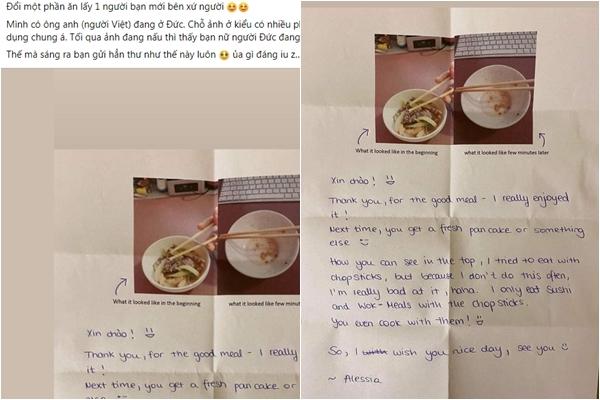 Đổi một phần ăn lấy 1 người bạn mới bên xứ người
Mình có ông anh (người Việt) đang ở Đức. Chỗ ảnh ở kiểu có nhiều
dụng chung á. Tối qua ảnh đang nấu thì thấy bạn nữ người Đức đang
Thế mà sáng ra bạn gửi hẳn thư như thế này luôn ủa gì đáng iu z...
What it looked like in the beginning
what it looked like few
Xin chào!
Thank you, for the good meal - I really
it!
Next time, you get a fresh pancake or
else
What it looked like in the beginning
what it looked like few minutes later
Xin chào!
Thank you, for the good meal - I really enjoyed
it!
Next time, you get a fresh pancake or something
else
How you can see in the top, I tried to eat with
chopsticks, but because I don't do this often,
I'm really bad at it, haha. I only eat Sushi
and Wok-Meals with the chopsticks.
You even cook with them!
So, I wish you nice day, see you
~ Alessia